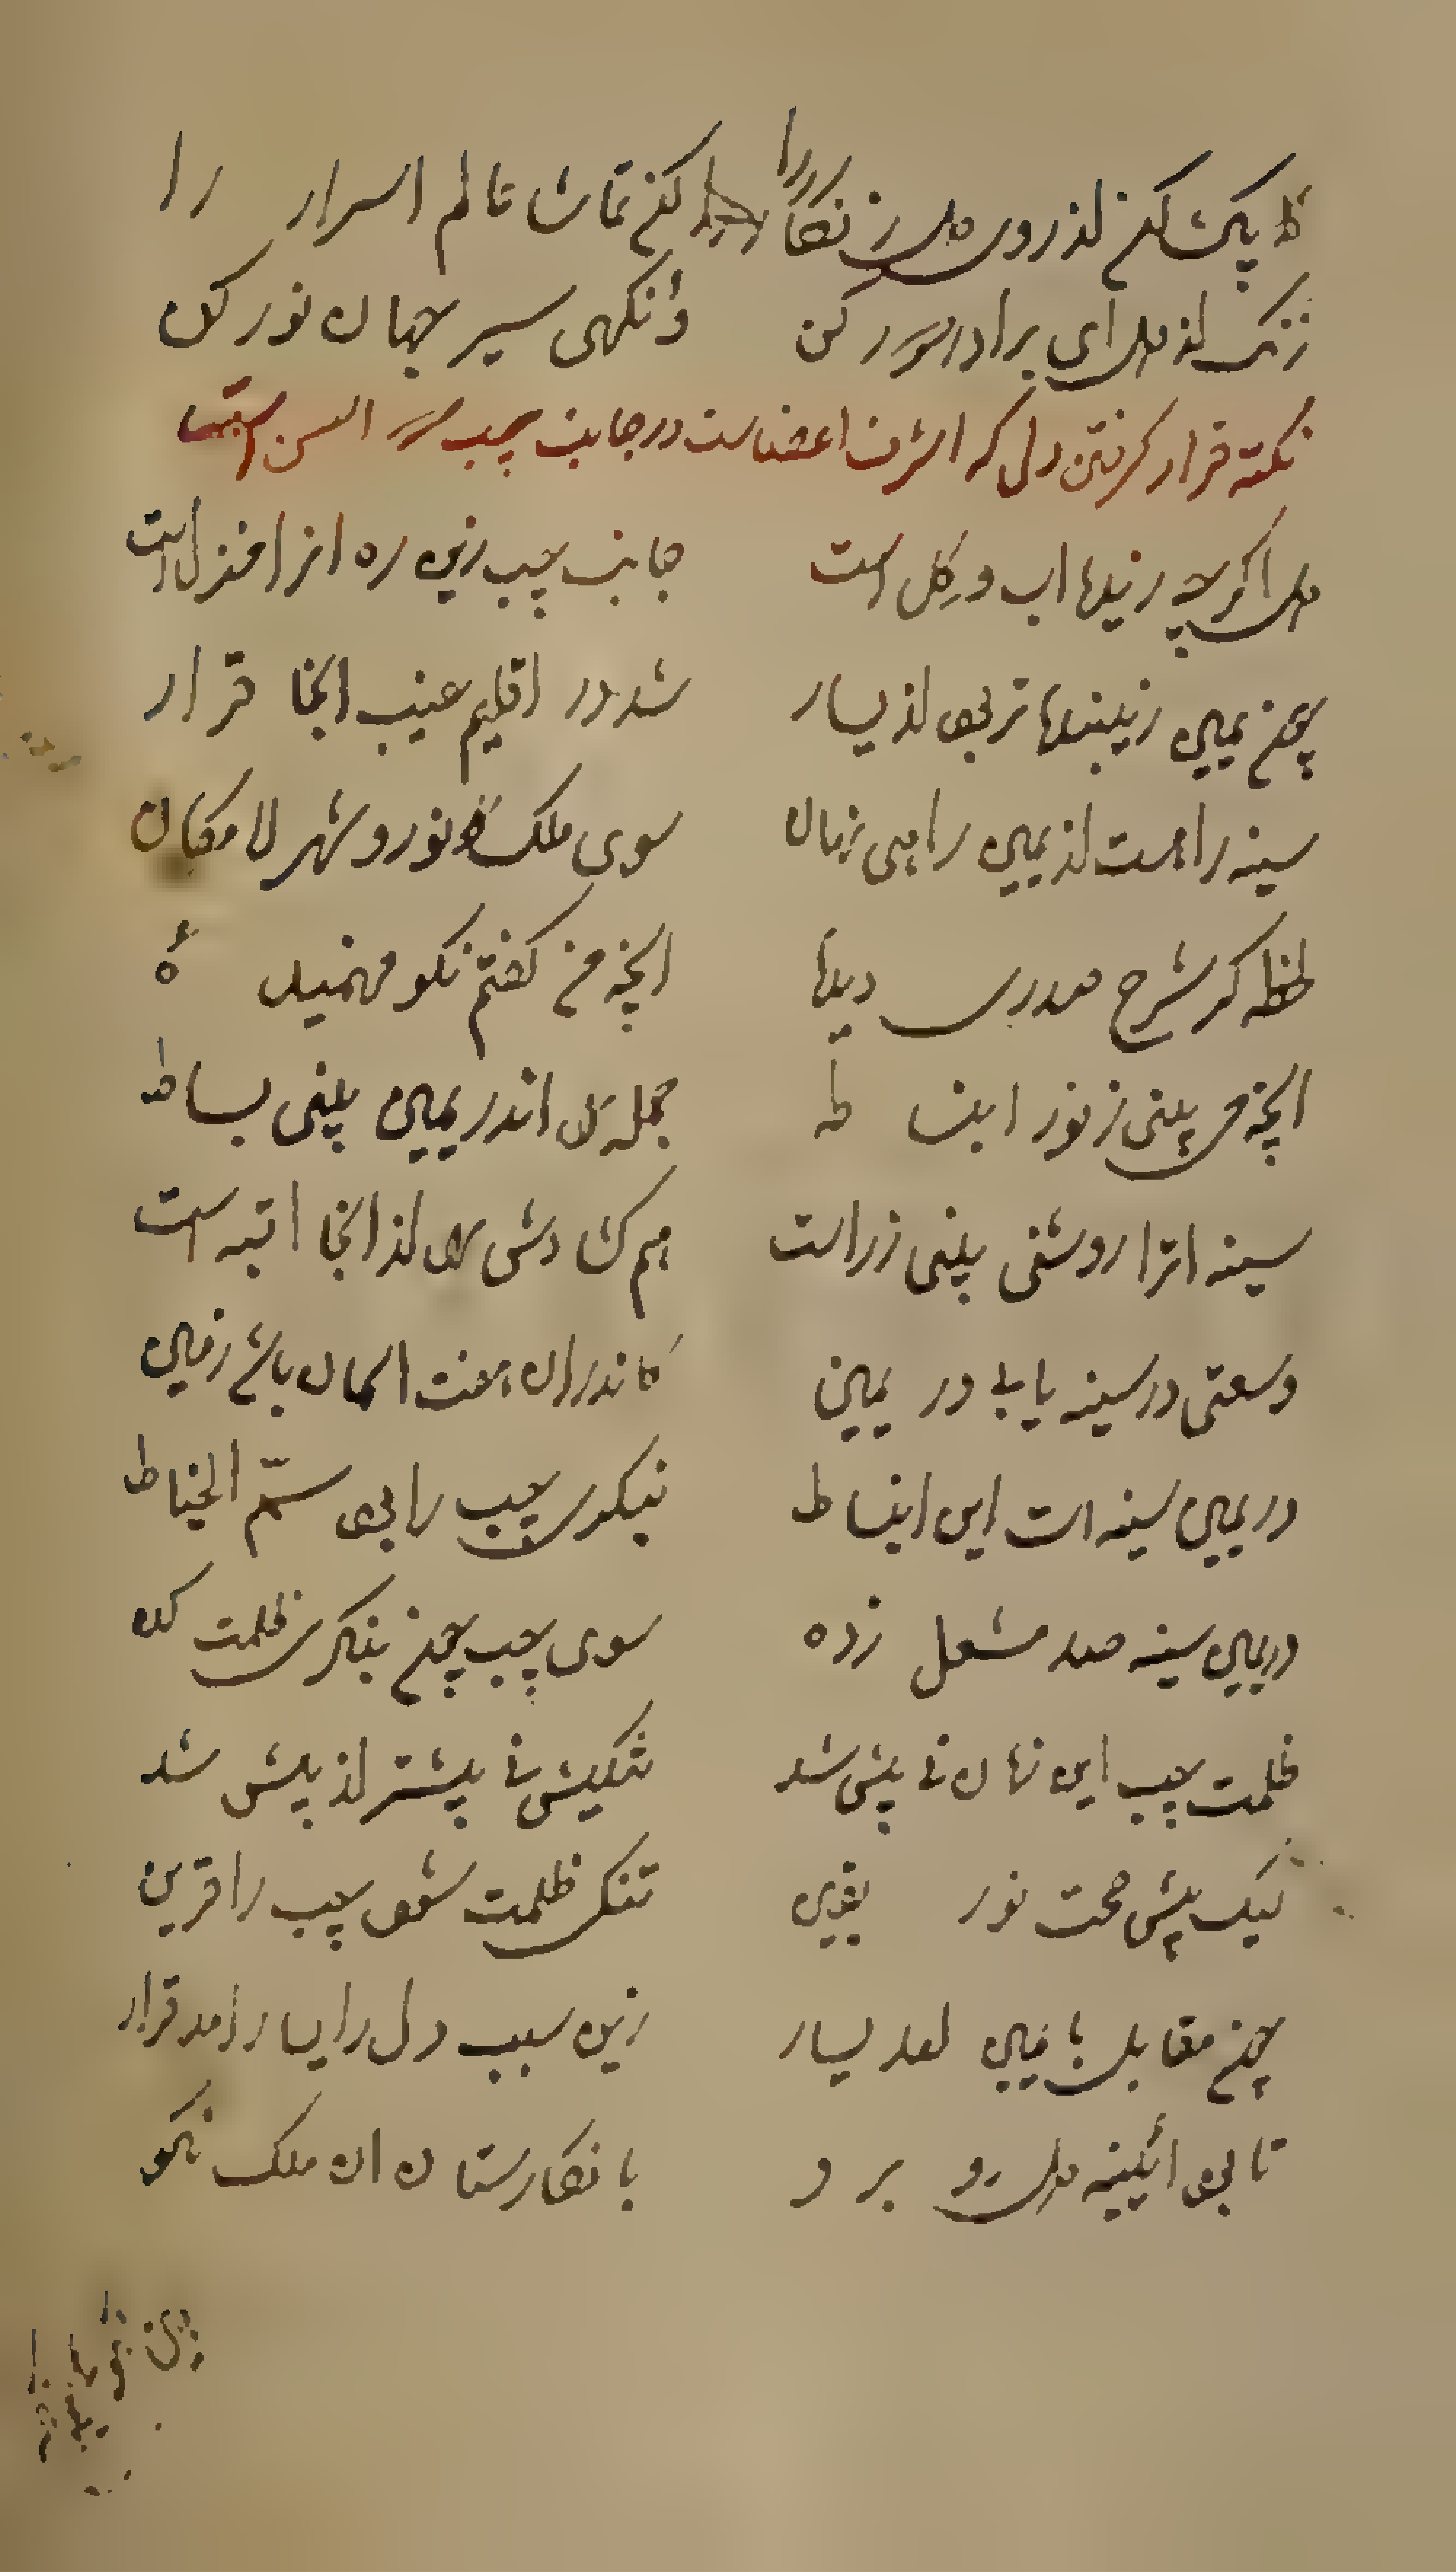 پاک کن از روی دل زنکار را کن تماشا عالم اسرار را
زنک از دل ای برادر دور کن وانکهی سیر جهان نور کن
نکته قرار کرفتن دل که اشرف اعضاست در جانب چپ که است
دل اکر چه زینها اب و کل است جانب چپ زین ره انرا منزل است
چون یمین زینها تربود از یسار شد در اقلیم عیب انجا قرار
سینه را هست از یمین راهی نهان سوی ملک نور و شهر لامکان
لحظه کر شرح صدرس دیدهٔ انچه من کفتم نکو فهمیدهٔ
انچه می بینی ز نور انبساط جمله را اندر یمین بینی بساط
سینه ات را روشنی بینی ز راست هم کشادش هم از انجا ابتداست
وسعتی در سینه یابی در یمین کاندران هفت اسمان باشد زمین
در یمین سینه ات این انبساط بنکری چپ را بود سمّ الخیاط
در یمین سینه صد مشعل زده سوی چپ چون بنکری ظلمت کده
ظلمت چپ این زمان نی پیش شد تنکیش نی پیشتر از پیش شد
لیک پیش صحت نور یقین تنک ظلمت شد چپ را قرین
چون مقابل با یمین امد یسار زین سبب دل را یسار امد قرار
تا بود ائینه دل رو برو با نکارستان ان ملک نکو